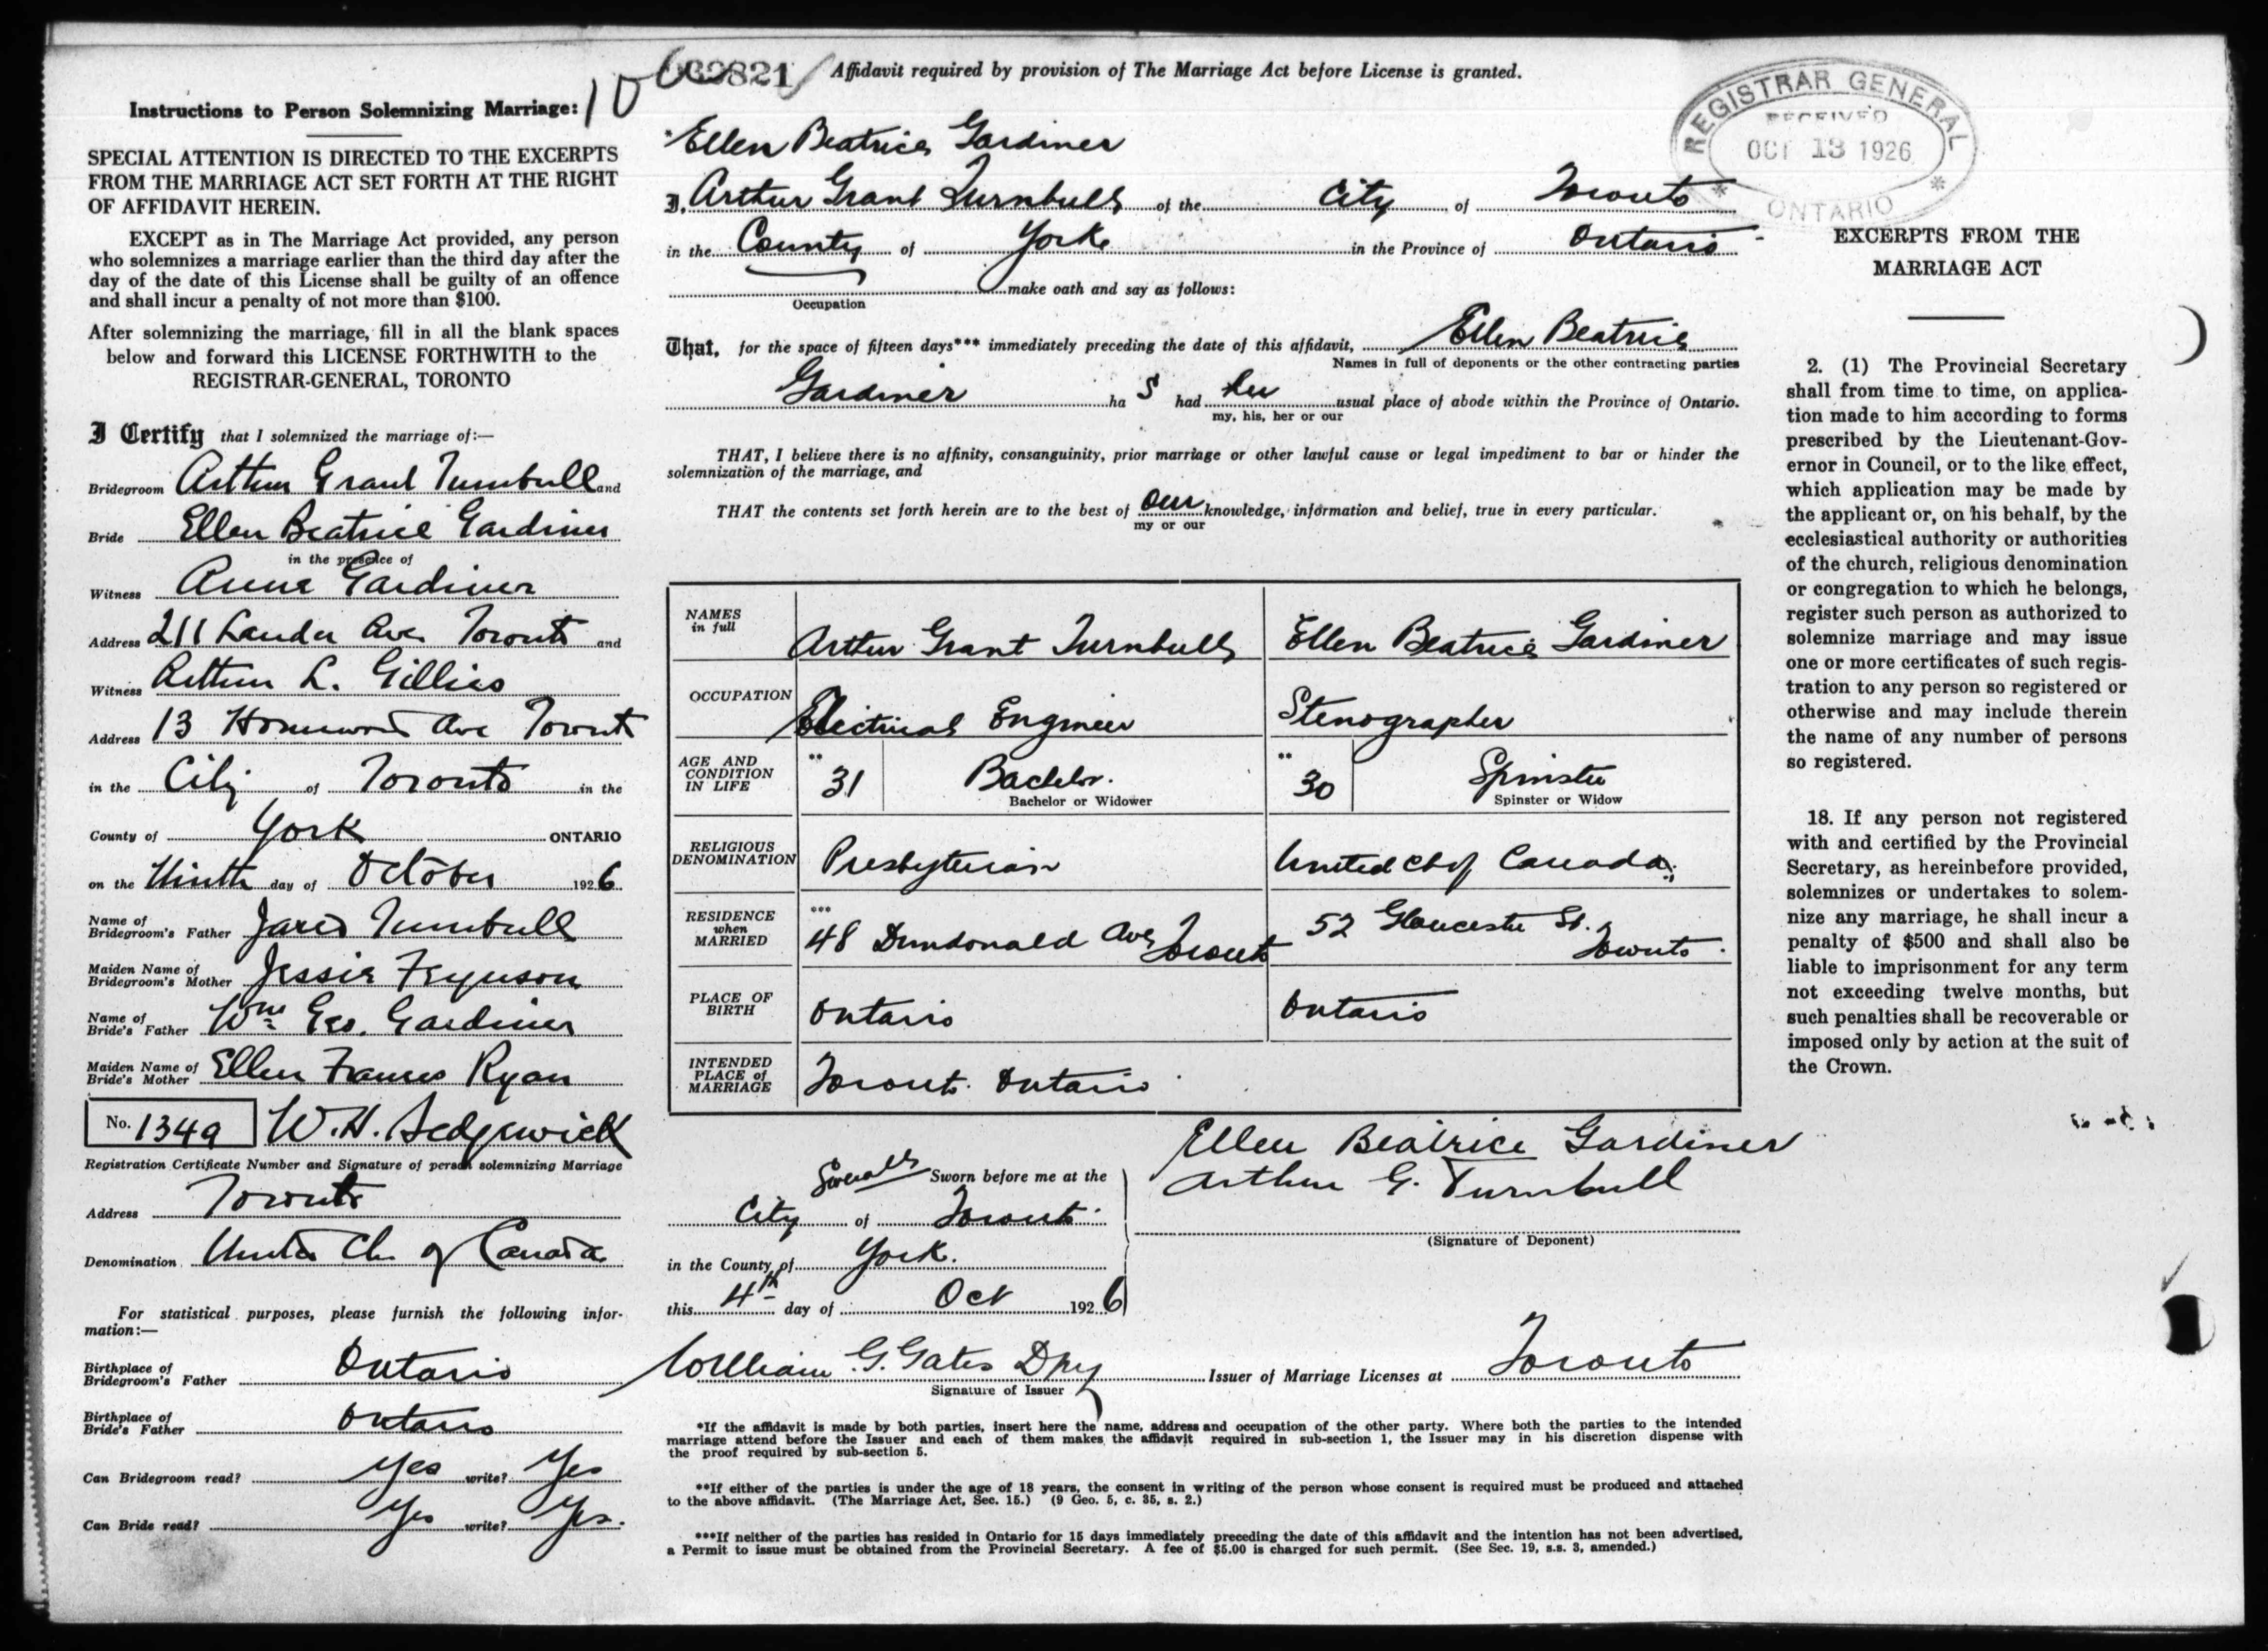 Affidavit required by provision of The Marriage Act before License is granted.
REGISTRAR GENERAL
RECEIVED
OCT 13 1926
ONTARIO
Instructions to Person Solemnizing Marriage:
SPECIAL ATTENTION IS DIRECTED TO THE EXCERPTS
FROM THE MARRIAGE ACT SET FORTH AT THE RIGHT
OF AFFIDAVIT HEREIN.
EXCEPT as in The Marriage Act provided, any person
who solemnizes a marriage earlier than the third day after the
day of the date of this License shall be guilty of an offence
and shall incur a penalty of not more than $100.
After solemnizing the marriage, fill in all the blank spaces
below and forward this LICENSE FORTHWITH to the
REGISTRAR-GENERAL, TORONTO
I Certify that I solemnized the marriage of:—
Bridegroom Arthur Grant Turnbull and
Bride Ellen Beatrice Gardiner
in the presence of
Witness Anna Gardiner
Address 211 Lauder Ave Toronto and
Witness Arthur L. Gillies
Address 13 Homewood Ave Toronto
in the City of Toronto in the
County of York ONTARIO
on the Ninth day of October 1926
Name of
Bridegroom's Father Turnbull
Maiden Name of
Bridegroom's Mother Jessie Ferguson
Name of
Bride's Father Wm Geo. Gardiner
Maiden Name of
Bride's Mother Ellen Frances Ryan
No. 1349 W. H. Sedgewick
Registration Certificate Number and Signature of person solemnizing Marriage
Address Toronto
Denomination United Ch. of Canada
For statistical purposes, please furnish the following infor-
mation:—
Birthplace of
Bridegroom's Father Ontario
Birthplace of
Bride's Father Ontario
Can Bridegroom read? Yes write? Yes
Can Bride read? Yes write? Yes.
*Ellen Beatrice Gardiner
I, Arthur Grant Turnbull of the City of Toronto
in the County of York in the Province of Ontario
make oath and say as follows:
Occupation
That, for the space of fifteen days*** immediately preceding the date of this affidavit, Ellen Beatrice
Names in full of deponents or the other contracting parties
Gardiner has had her usual place of abode within the Province of Ontario.
my, his, her or our
THAT, I believe there is no affinity, consanguinity, prior marriage or other lawful cause or legal impediment to bar or hinder the
solemnization of the marriage, and
THAT the contents set forth herein are to the best of our knowledge, information and belief, true in every particular.
my or our
NAMES
in full
Arthur Grant Turnbull Ellen Beatrice Gardiner
OCCUPATION Electrical Engineer Stenographer
AGE AND
CONDITION
IN LIFE
** 31 Bachelor. ** 30 Spinster
Bachelor or Widower Spinster or Widow
RELIGIOUS
DENOMINATION
Presbyterian United Ch of Canada
RESIDENCE
when
MARRIED
*** 48 Dundonald Ave Toronto 52 Gloucester St. Toronto
PLACE OF
BIRTH
Ontario Ontario
INTENDED
PLACE of
MARRIAGE
Toronto. Ontario
Ellen Beatrice Gardiner
Arthur G. Turnbull
(Signature of Deponent)
Severally Sworn before me at the
City of Toronto
in the County of York.
this 4th day of Oct 1926
William G. Gates Dpy Issuer of Marriage Licenses at Toronto
Signature of Issuer
*If the affidavit is made by both parties, insert here the name, address and occupation of the other party. Where both the parties to the intended
marriage attend before the Issuer and each of them makes the affidavit required in sub-section 1, the Issuer may in his discretion dispense with
the proof required by sub-section 5.
**If either of the parties is under the age of 18 years, the consent in writing of the person whose consent is required must be produced and attached
to the above affidavit. (The Marriage Act, Sec. 15.) (9 Geo. 5, c. 35, s. 2.)
***If neither of the parties has resided in Ontario for 15 days immediately preceding the date of this affidavit and the intention has not been advertised,
a Permit to issue must be obtained from the Provincial Secretary. A fee of $5.00 is charged for such permit. (See Sec. 19, s.s. 3, amended.)
EXCERPTS FROM THE
MARRIAGE ACT
2. (1) The Provincial Secretary
shall from time to time, on applica-
tion made to him according to forms
prescribed by the Lieutenant-Gov-
ernor in Council, or to the like effect,
which application may be made by
the applicant or, on his behalf, by the
ecclesiastical authority or authorities
of the church, religious denomination
or congregation to which he belongs,
register such person as authorized to
solemnize marriage and may issue
one or more certificates of such regis-
tration to any person so registered or
otherwise and may include therein
the name of any number of persons
so registered.
18. If any person not registered
with and certified by the Provincial
Secretary, as hereinbefore provided,
solemnizes or undertakes to solem-
nize any marriage, he shall incur a
penalty of $500 and shall also be
liable to imprisonment for any term
not exceeding twelve months, but
such penalties shall be recoverable or
imposed only by action at the suit of
the Crown.